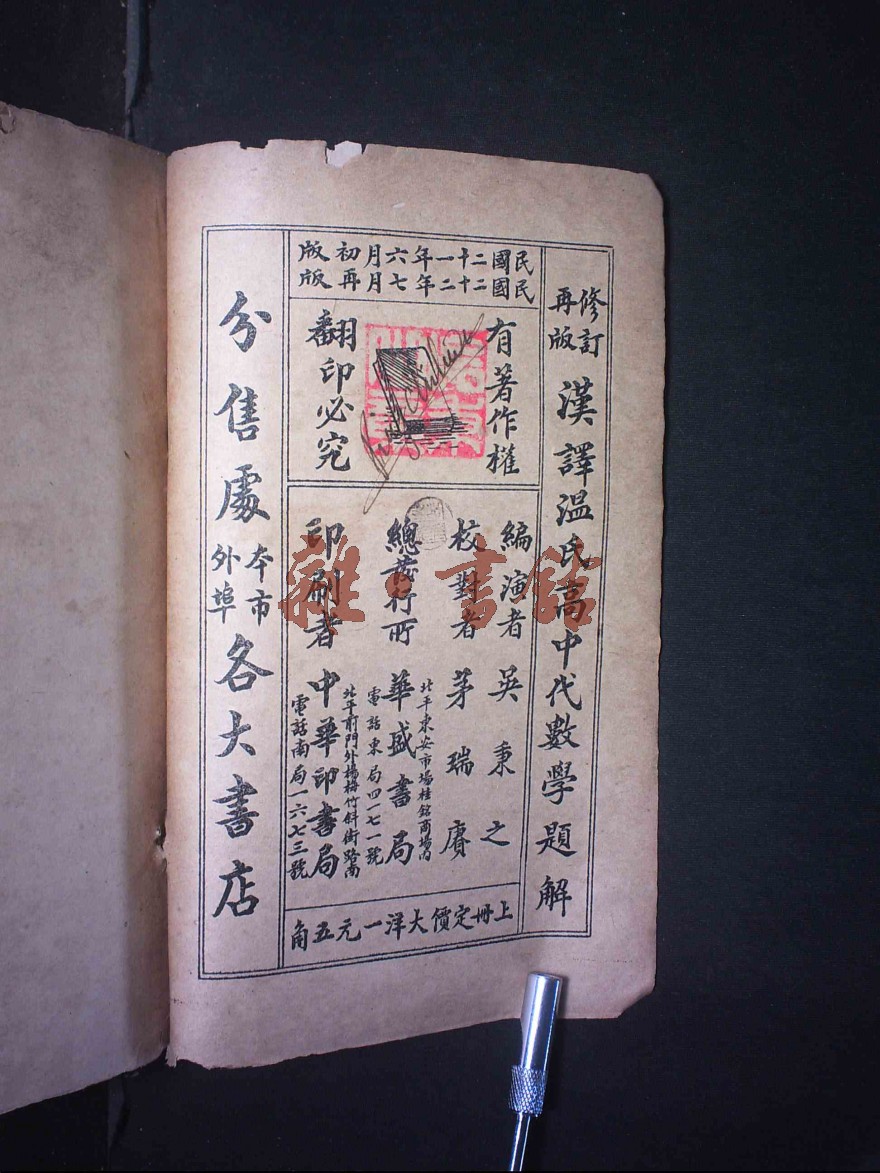 民國二十一年六月初版
民國二十二年七月再版
修訂
再版
漢譯溫氏高中代數學題解
有著作權
翻印必究
編演者 吳秉之
校對者 茅瑞賡
總發行所 華盛書局
北平東安市場桂銘商場內
電話東局四一七一號
印刷者 中華印書局
北平前門外楊梅竹斜街路南
電話南局一六七三號
上冊定價大洋一元五角
分售處
本市
外埠
各大書店
雜·書館